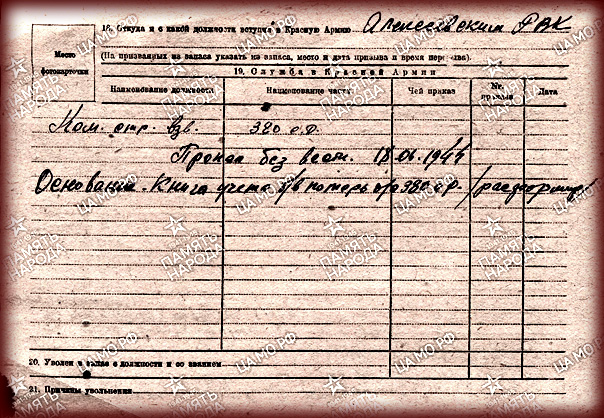 18. Откуда и с какой должности вступил в Красную Армию Алексеевским РВК
Место фотокарточки
(На призванных из запаса указать из запаса, место и дата призыва и время перерыва).
19. Служба в Красной Армии
Наименование должности Наименование части Чей приказ № приказа Дата
Ком. стр. взв. 380 с.д.
Пропал без вест. 18.06.1944
Основание. Книга учета б/в потерь 380 с.д.
20. Уволен в запас с должности и со званием
21. Причины увольнения
ПАМЯТЬ НАРОДА
ЦАМО.РФ